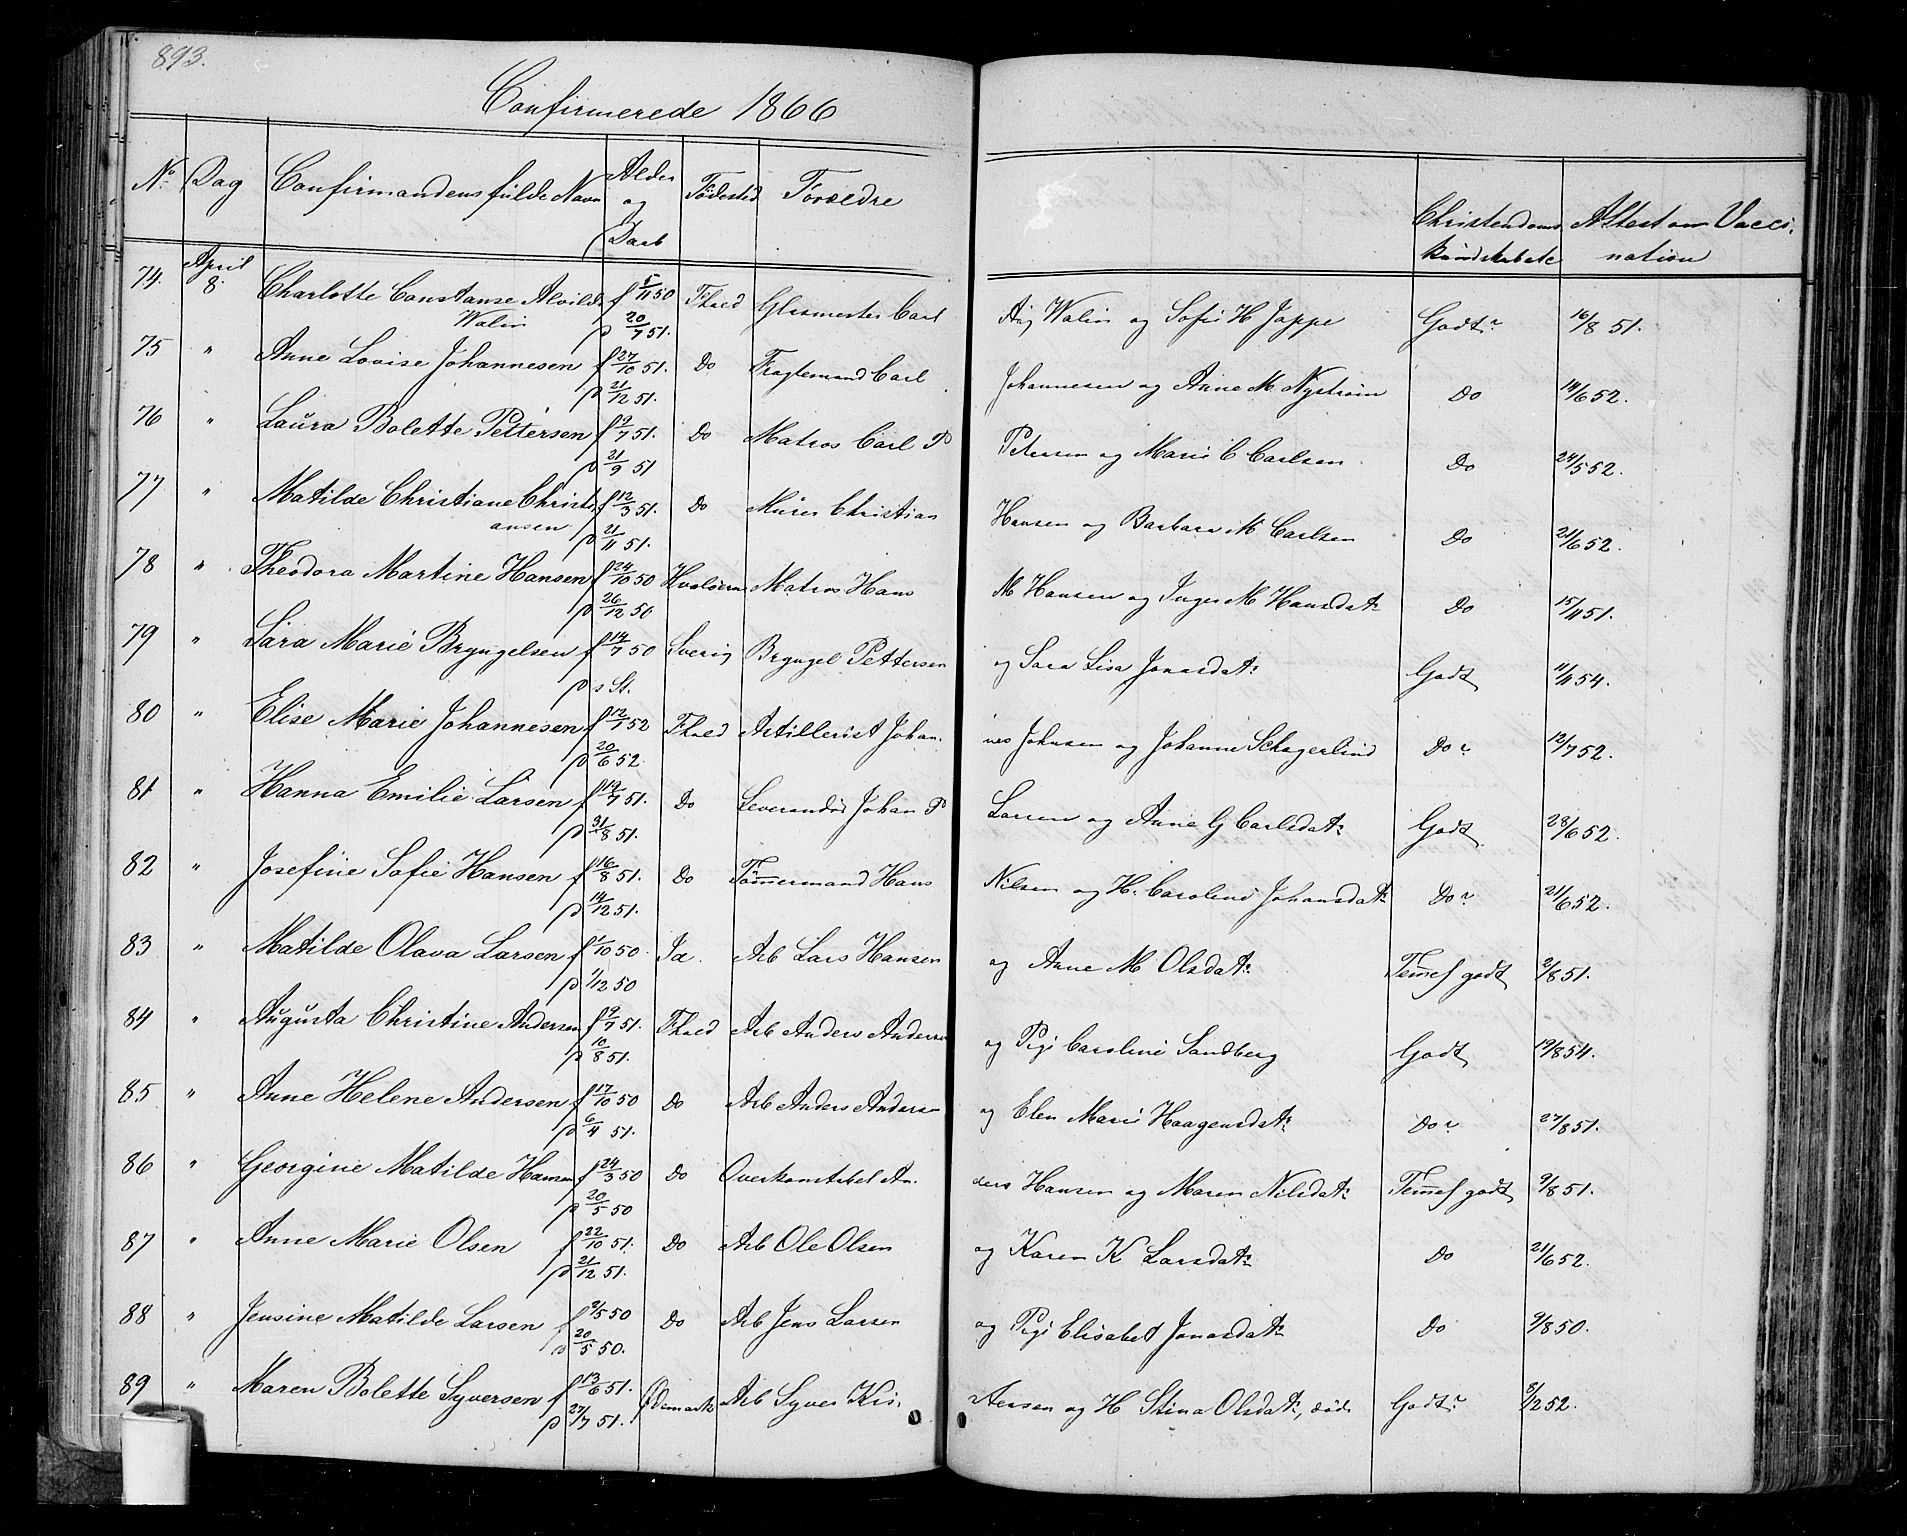 893.
Confirmerede 1866
No Dag Confirmandens fulde Navn Alder og Daab Födested Forældre Christendoms Kundskabate Attest om Vacci nation
74. April 8. Charlotte Constanse Alvilde Walin f 5/11 50 p 20/7 51. Fhald Glasmester Carl Aug Walin og Sofie H Jappe Godt 16/8 51.
75 " Anne Lovise Johannesen f 27/10 51. p 21/12 51. Do Fragtemand Carl Johannesen og Anne M. Nyström Do 14/6 52.
76 " Laura Bolette Pettersen f 9/7 51. p 21/9 51 Do Matros Carl P Petersen og Marie C Carlsen Do 24/5 52.
77 " Matilde Christiane Christi ansen f 12/3 51. p 21/11 51. Do Murer Christian Hansen og Barbara M Carlsen Do 21/6 52.
78 " Theodora Martine Hansen f 24/10 50 p 26/12 50 Hvalöerne Matros Hans M Hansen og Inger M Hansdatr Do 15/11 51.
79 " Sara Marie Bryngelsen f 14/7 50 p s St. Sverig Bryngel Pettersen og Sara Lisa Jonasdatr Godt 11/11 54.
80 " Elise Marie Johannesen f 12/1 52 p 20/6 52. Fhald Artillerist Johan nes Johnsen og Johanne Schagerlind Do 12/7 52.
81 " Hanna Emilie Larsen f 19/7 51. p 31/8 51. Do Leverandör Johan P Larsen og Anne G Carlsdatr Godt 28/6 52.
82 " Josefine Sofie Hansen f 16/8 51. p 14/12 51. Do Tömmermand Hans Nilsen og H. Caroline Johansdatr Do 21/6 52.
83 " Matilde Olava Larsen f 1/10 50. p 1/12 50 Id. Arb Lars Hansen og Anne M Olsdatr Temmel godt 2/8 51.
84 " Augusta Christine Andersen f 9/7 51. p 10/8 51. Fhald Arb Anders Andersen og Pige Caroline Sandberg Godt 19/8 54.
85 " Anne Helene Andersen f 17/10 50 p 6/4 51. Do Arb Anders Andersen og Elen Marie Haagensdatr Do 27/8 51.
86 " Georgine Matilde Hansen f 24/3 50 p 20/5 50 Do Overkonstabel An ders Hansen og Maren Nilsdatr Temmel godt 9/8 51.
87 " Anne Marie Olsen f 22/10 51. p 21/12 51. Do Arb Ole Olsen og Karen K Larsdatr Do 21/6 52.
88 " Jensine Matilde Larsen f 9/5 50 p 20/5 50. Do Arb Jens Larsen og Pige Elisabet Jonasdatr Do 9/8 50.
89 " Maren Bolette Syversen f 13/6 51. p 27/7 51. Ödemark Arb Syver Kri stensen og H Stina Olsdatr, död Godt 8/2 52.